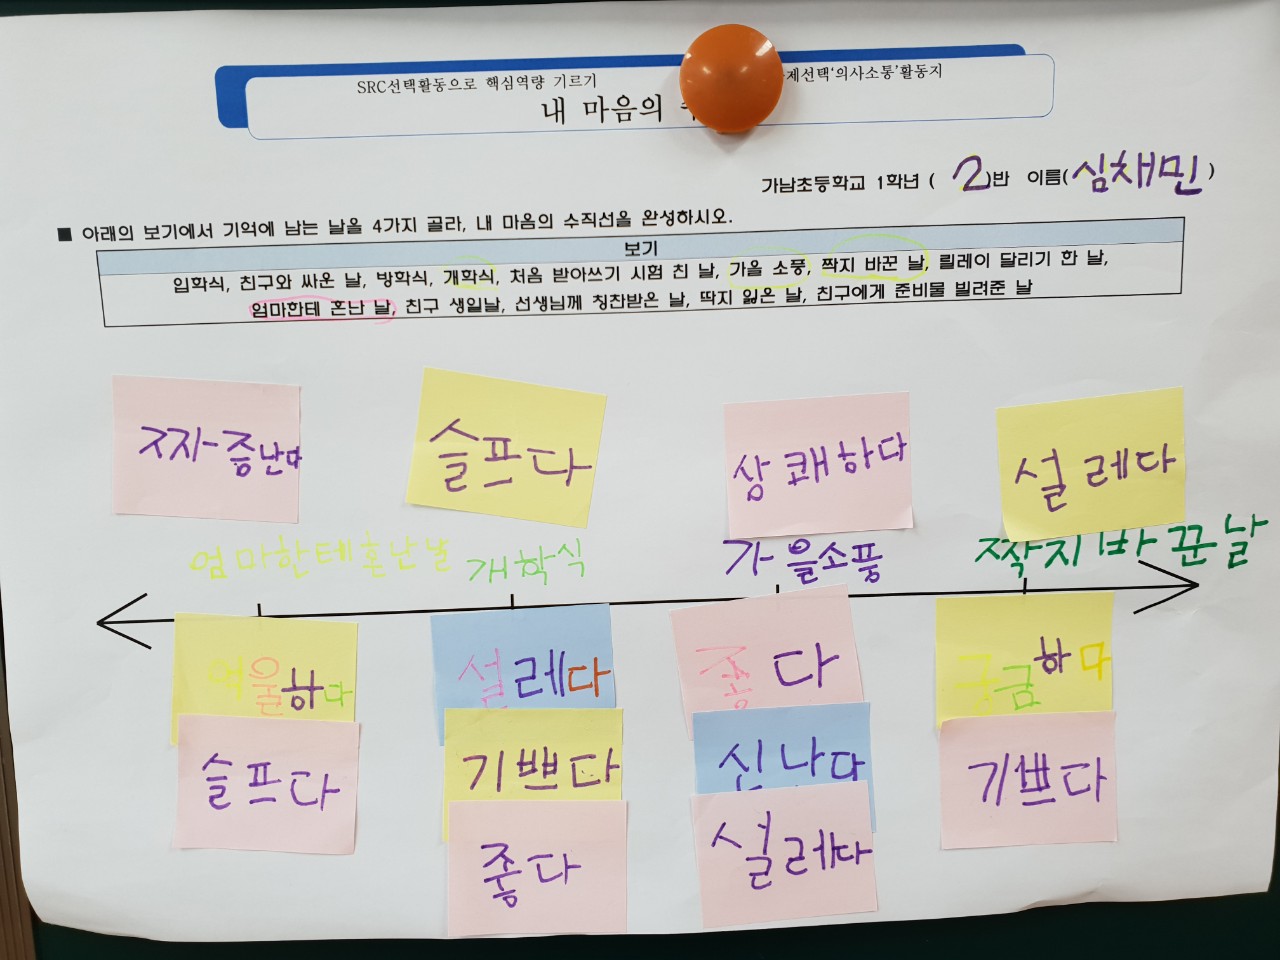 SRC선택활동으로 핵심역량 기르기
제선택'의사소통'활동지
내 마음의
가남초등학교 1학년 ( 2 )반 이름( 심채민 )
■ 아래의 보기에서 기억에 남는 날을 4가지 골라, 내 마음의 수직선을 완성하시오.
보기
입학식, 친구와 싸운 날, 방학식, 개학식, 처음 받아쓰기 시험 친 날, 가을 소풍, 짝지 바꾼 날, 릴레이 달리기 한 날,
엄마한테 혼난 날, 친구 생일날, 선생님께 칭찬받은 날, 딱지 잃은 날, 친구에게 준비물 빌려준 날
짜증난다
슬프다
상쾌하다
설레다
엄마한테혼난날
개학식
가을소풍
짝지바꾼날
억울하다
설레다
좋다
궁금하다
슬프다
기쁘다
신나다
기쁘다
좋다
설레다